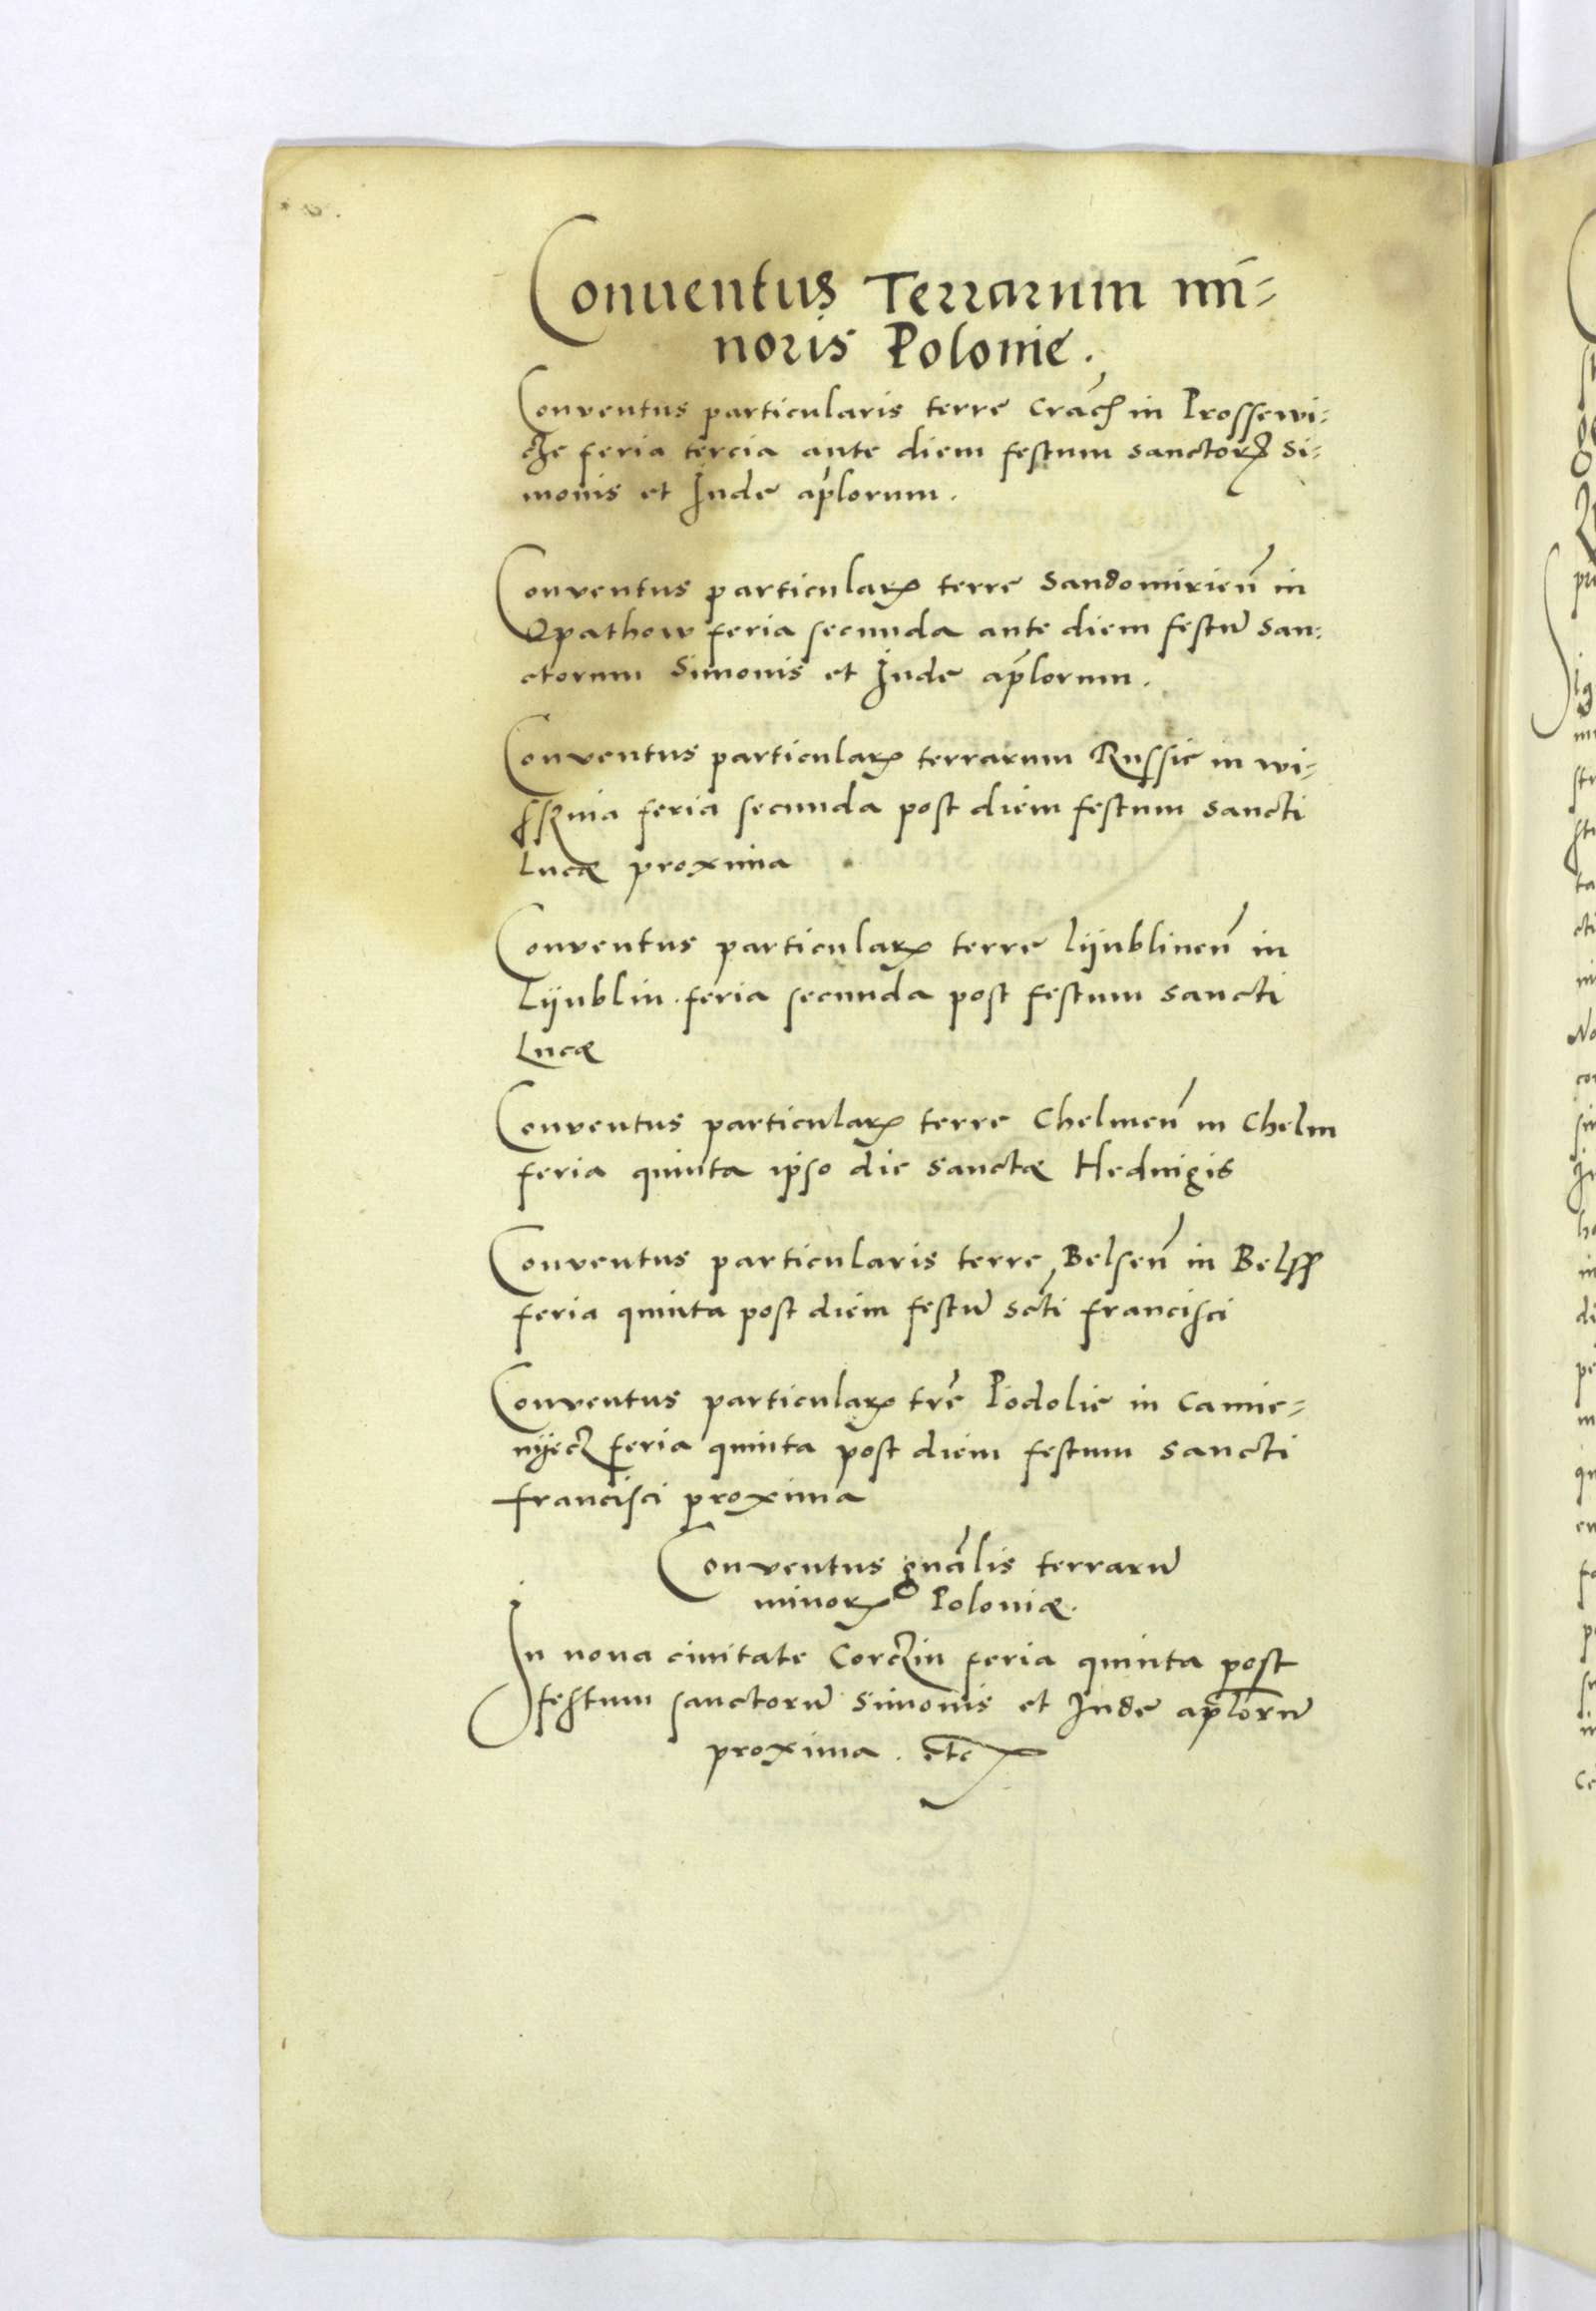 Conuentus Terrarum mi=
noris Polonie.
Conventus particularis terre Crac̄ in Prossewi=
cze feria tercia ante diem festum sanctorꝝ Si=
monis et Jude ap̄lorum.
Conventus particularꝭ terre Sandomirien̄ in
Opathow feria secunda ante diem festū San=
ctorum Simonis et Jude ap̄lorum.
Conventus particularꝭ terrarum Russie in wi=
sznia feria secunda post diem festum sancti
Lucæ proxima
Conventus particularꝭ terre Lijublinen̄ in
Lijublin. feria secunda post festum sancti
Lucæ
Conventus particularꝭ terre Chelmen̄ in Chelm
feria quinta ipso die sanctæ Heduigis
Conventus particularis terre Belsen̄ in Belss
feria quinta post diem festū sc̄ti francisci
Conventus particularꝭ tr̄e Podolie in Camie=
nyecz feria quinta post diem festum sancti
francisci proxima
Conventus gn̄alis terrarū
minorꝭ Poloniæ.
In noua ciuitate Corczin feria quinta post
festum sanctorū Simonis et Jude ap̄lorū
proxima. etc